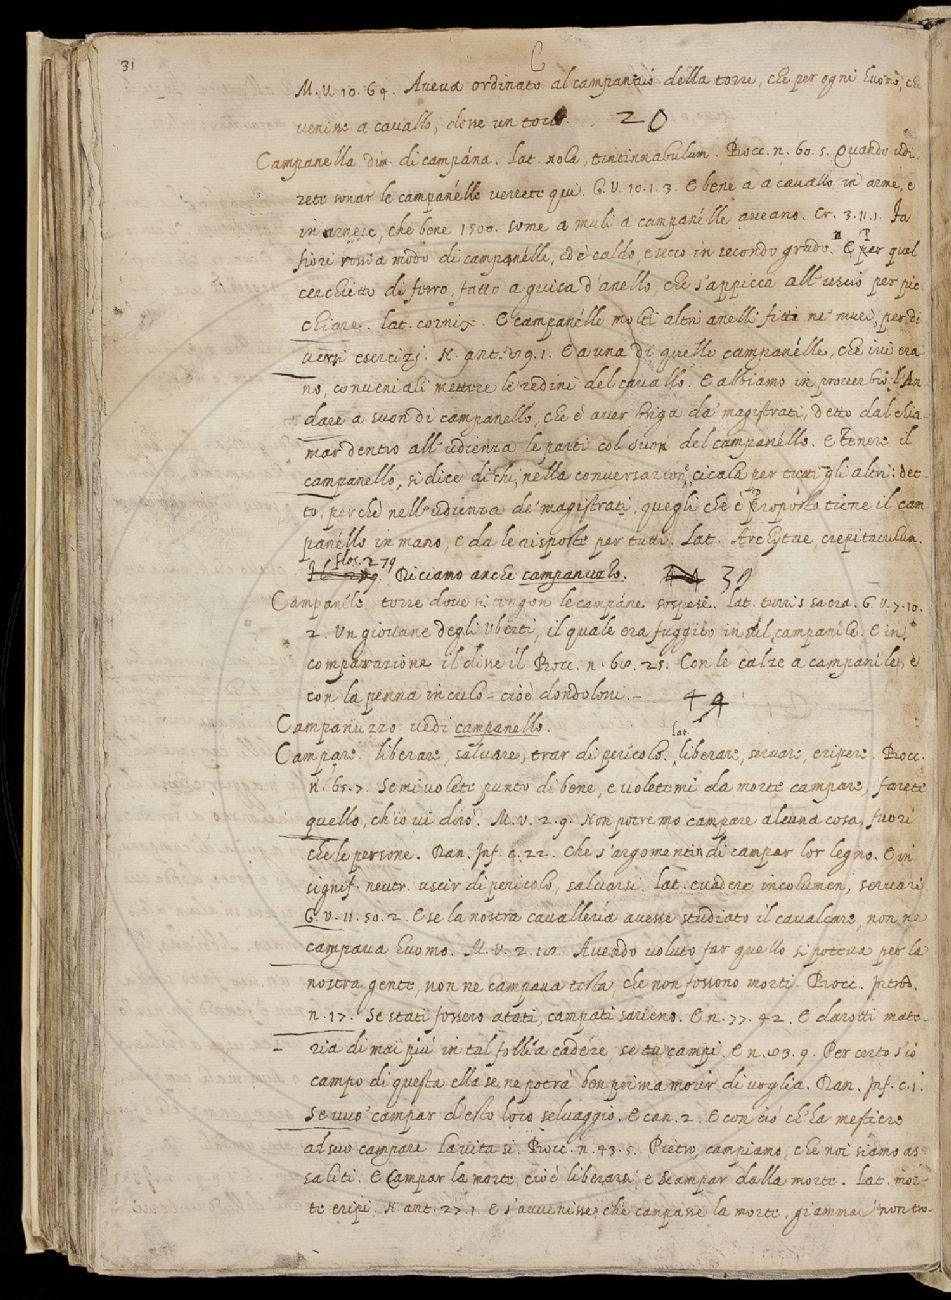 31
C
M. V. 10. 64. Aveva ordinato al campanaio della torre, che per ogni huomo, che
venisse a cavallo, desse un tocco. 20
Campanélla dim. di campána. Lat. nola, tintinnabulum. Bocc. n. 60. 5. Quando udi-
rete sonar le campanélle verrete qui. G. V. 10. 1. 3. E bene a a cavallo in arme, e
in arnese, che bene 1500. some a muli a campanélle aveano. Cr. 3. 11. 1. Fa
fiori rossi a modo di campanélle, ed è caldo, e secco in secondo grado. E per quel
cerchietto di ferro, fatto a guisa d'anello, che s'appicca all'uscio per pic-
chiare. Lat. cornix. E campanélle molti altri anelli fitti ne' muri, per di-
versi esercizj. N. ant. 29. 1. E a una di quelle campanélle, che ivi era-
no, convenia li mettere le redini del cavallo. E abbiamo in proverbio: An-
dare a suon di campanello, che è aver briga da' magistrati, detto dal chia-
mar dentro all'udienza le parti col suon del campanéllo. E tenere il
campanello, si dice di chi, nella conversazione, cicala per tutti gli altri: det-
to, perchè nell'udienza de' magistrati, quegli che è proposto tiene il cam
panéllo in mano, e da le risposte per tutti. Lat. Archytae crepitaculum.
Flos. 279
Diciamo anche campanuzzo. 39
Campaníle torre dove si tengon le campáne sospese. Lat. turris sacra. G. V. 7. 10.
2. Un giovane degli Uberti, il quale era fuggito in sul campaníle. E in
comparazione il disse il Bocc. n. 60. 25. Con le calze a campaníle, e
con la penna in culo - cioè dondoloni. - 44
Campanuzzo vedi campanello.
Campare. liberare, salvare, trar di pericolo. lat. liberare, servare, eripere. Bocc.
n. 65. 7. Se mi volete punto di bene, e voletemi da morte campare, farete
quello, ch'io vi dirò. M. V. 2. 9. Non potremo campare alcuna cosa, fuori
che le persone. Dan. Inf. c. 22. Che s'argomentin di campar lor legno. E in
signif. neutr. uscir di pericolo, salvarsi. Lat. evadere incolumem, servari
G. V. 11. 50. 2. E se la nostra cavallería avesse studiato il cavalcare, non ne
campava huomo. M. V. 2. Avendo voluto far quello si poteva per la
nostra gente, non ne campava testa, che non fossono morti. Bocc. Introd.
n. 17. Se stati fossero atati, campati sarieno. E n. 77. 42. E darotti mate-
ria di mai più in tal follía cadére, se tu campi. E n. 9. Per certo s'io
campo di questa ella se ne potrà ben prima morir di voglia. Dan. Inf. c. 1.
Se vuo' campar d'esto loco selvaggio. E can. 2. E con ciò ch'ha mestiere
al suo campare l'aiuta sì. Bocc. n. 43. 5. Pietro, campiamo, che noi siamo as-
saliti. E Campar la morte, cioè liberarsi, e scampar dalla morte. Lat. mor-
te eripi. N. ant. 27. 1. E s'avvenisse, che campasse la morte, giammai non tro-